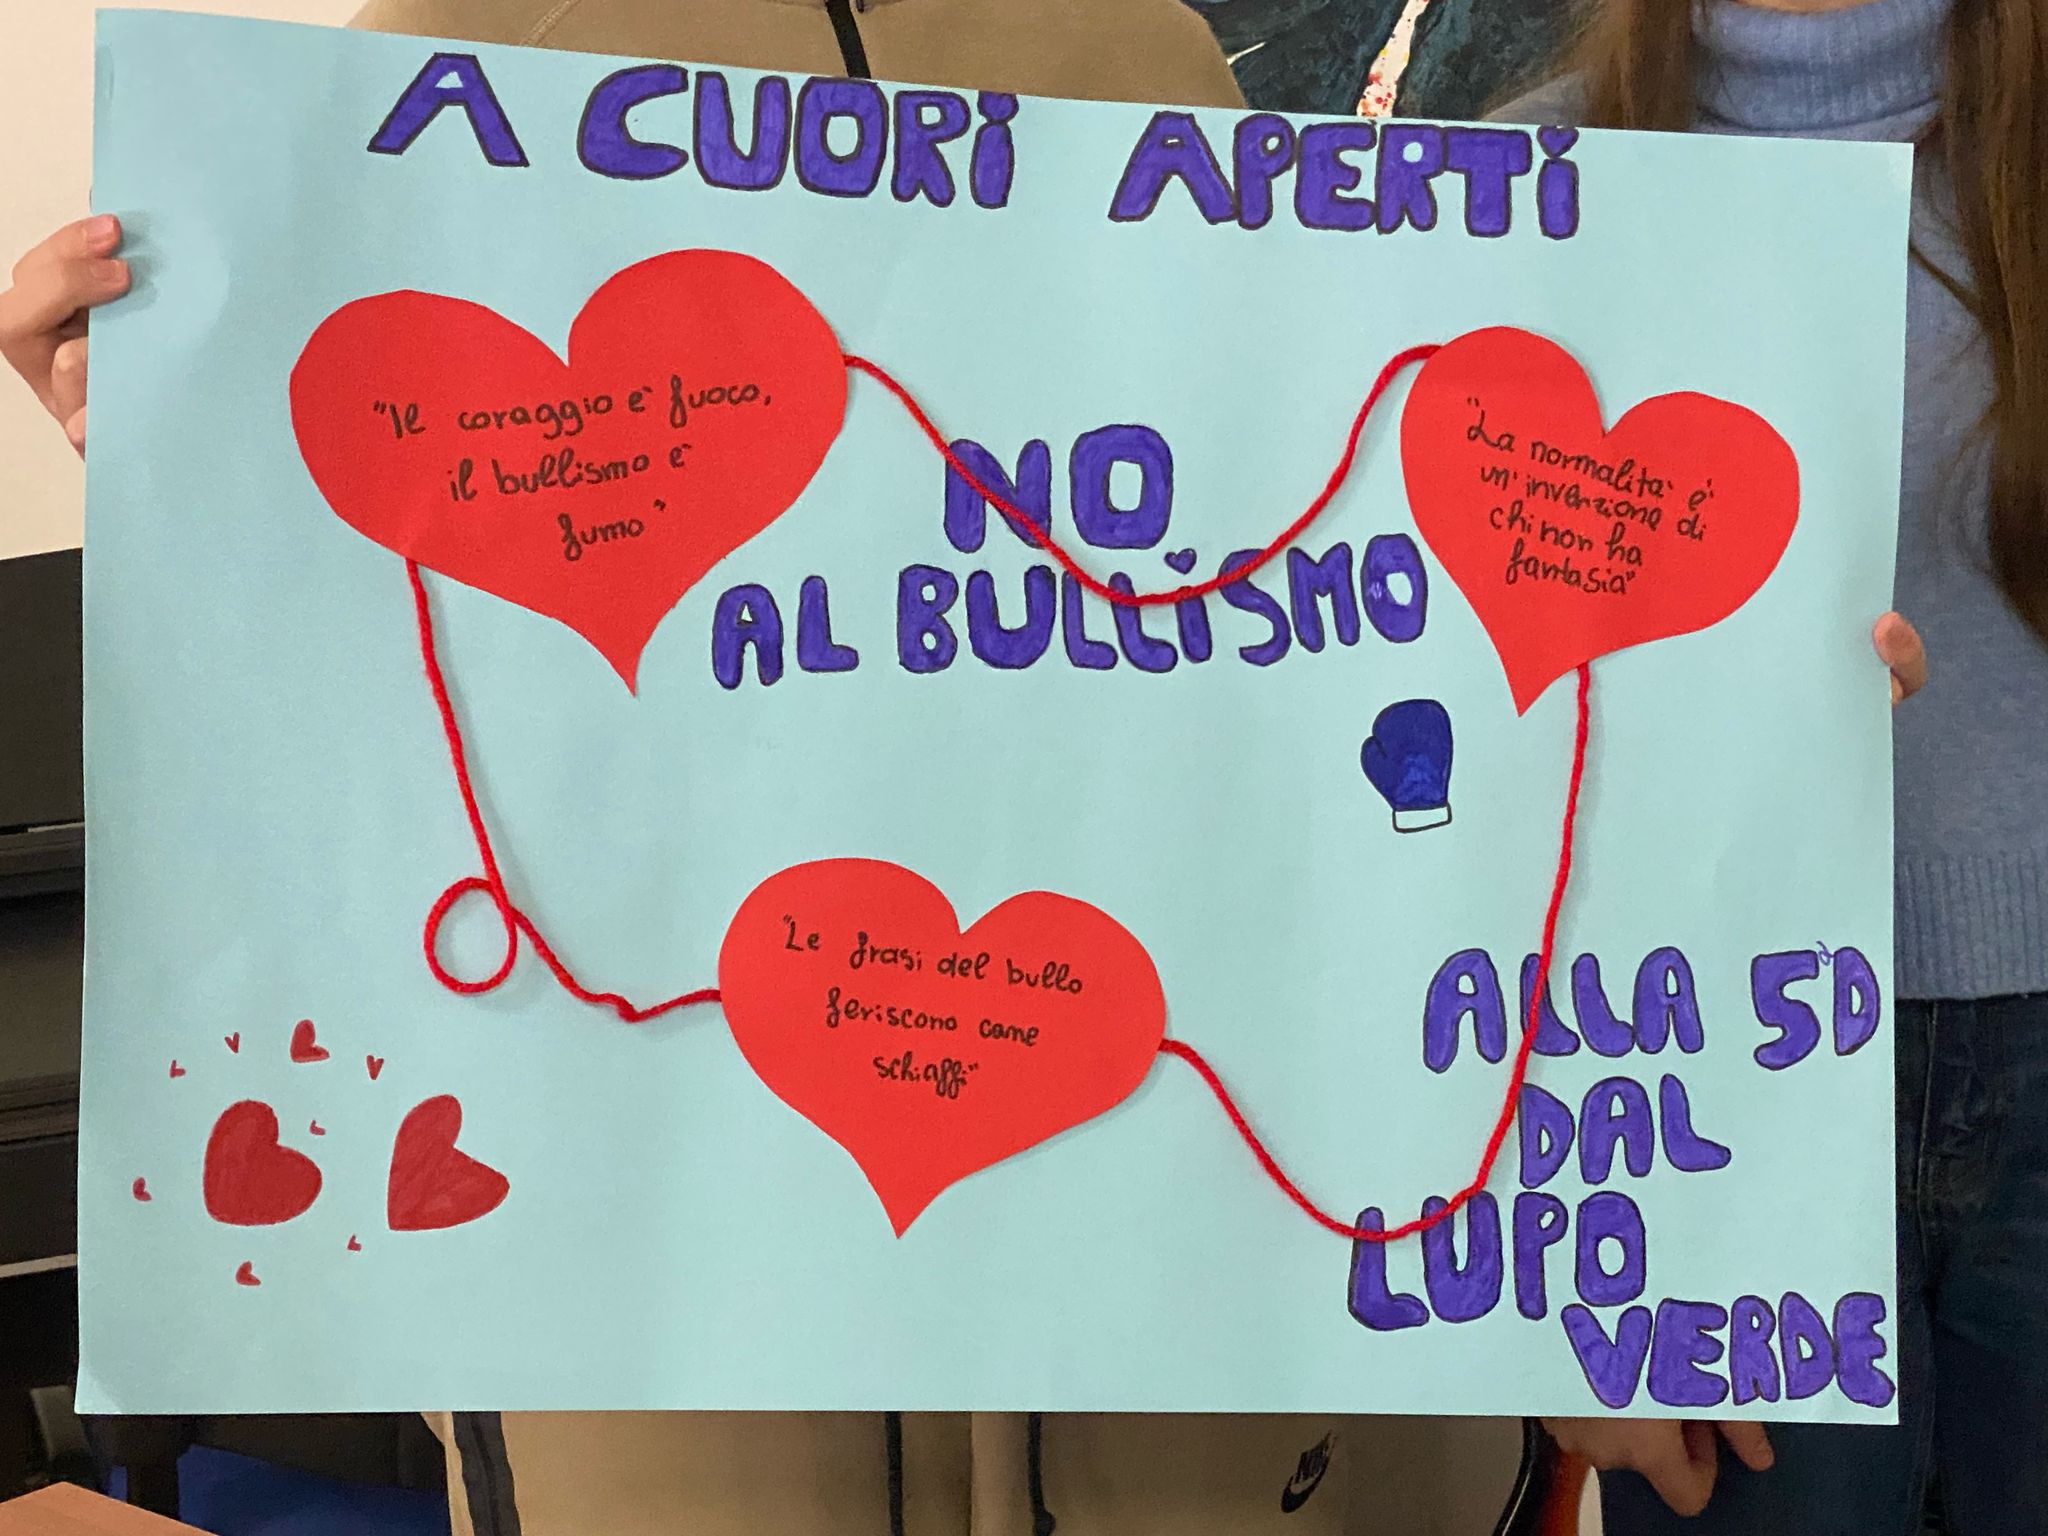 A CUORI APERTI
"Il coraggio è fuoco,
il bullismo è
fumo"
NO
AL BULLISMO
"La normalità è
un'invenzione di
chi non ha
fantasia"
"Le frasi del bullo
feriscono come
schiaffi"
ALLA 5ªD
DAL
LUPO
VERDE
NIKE